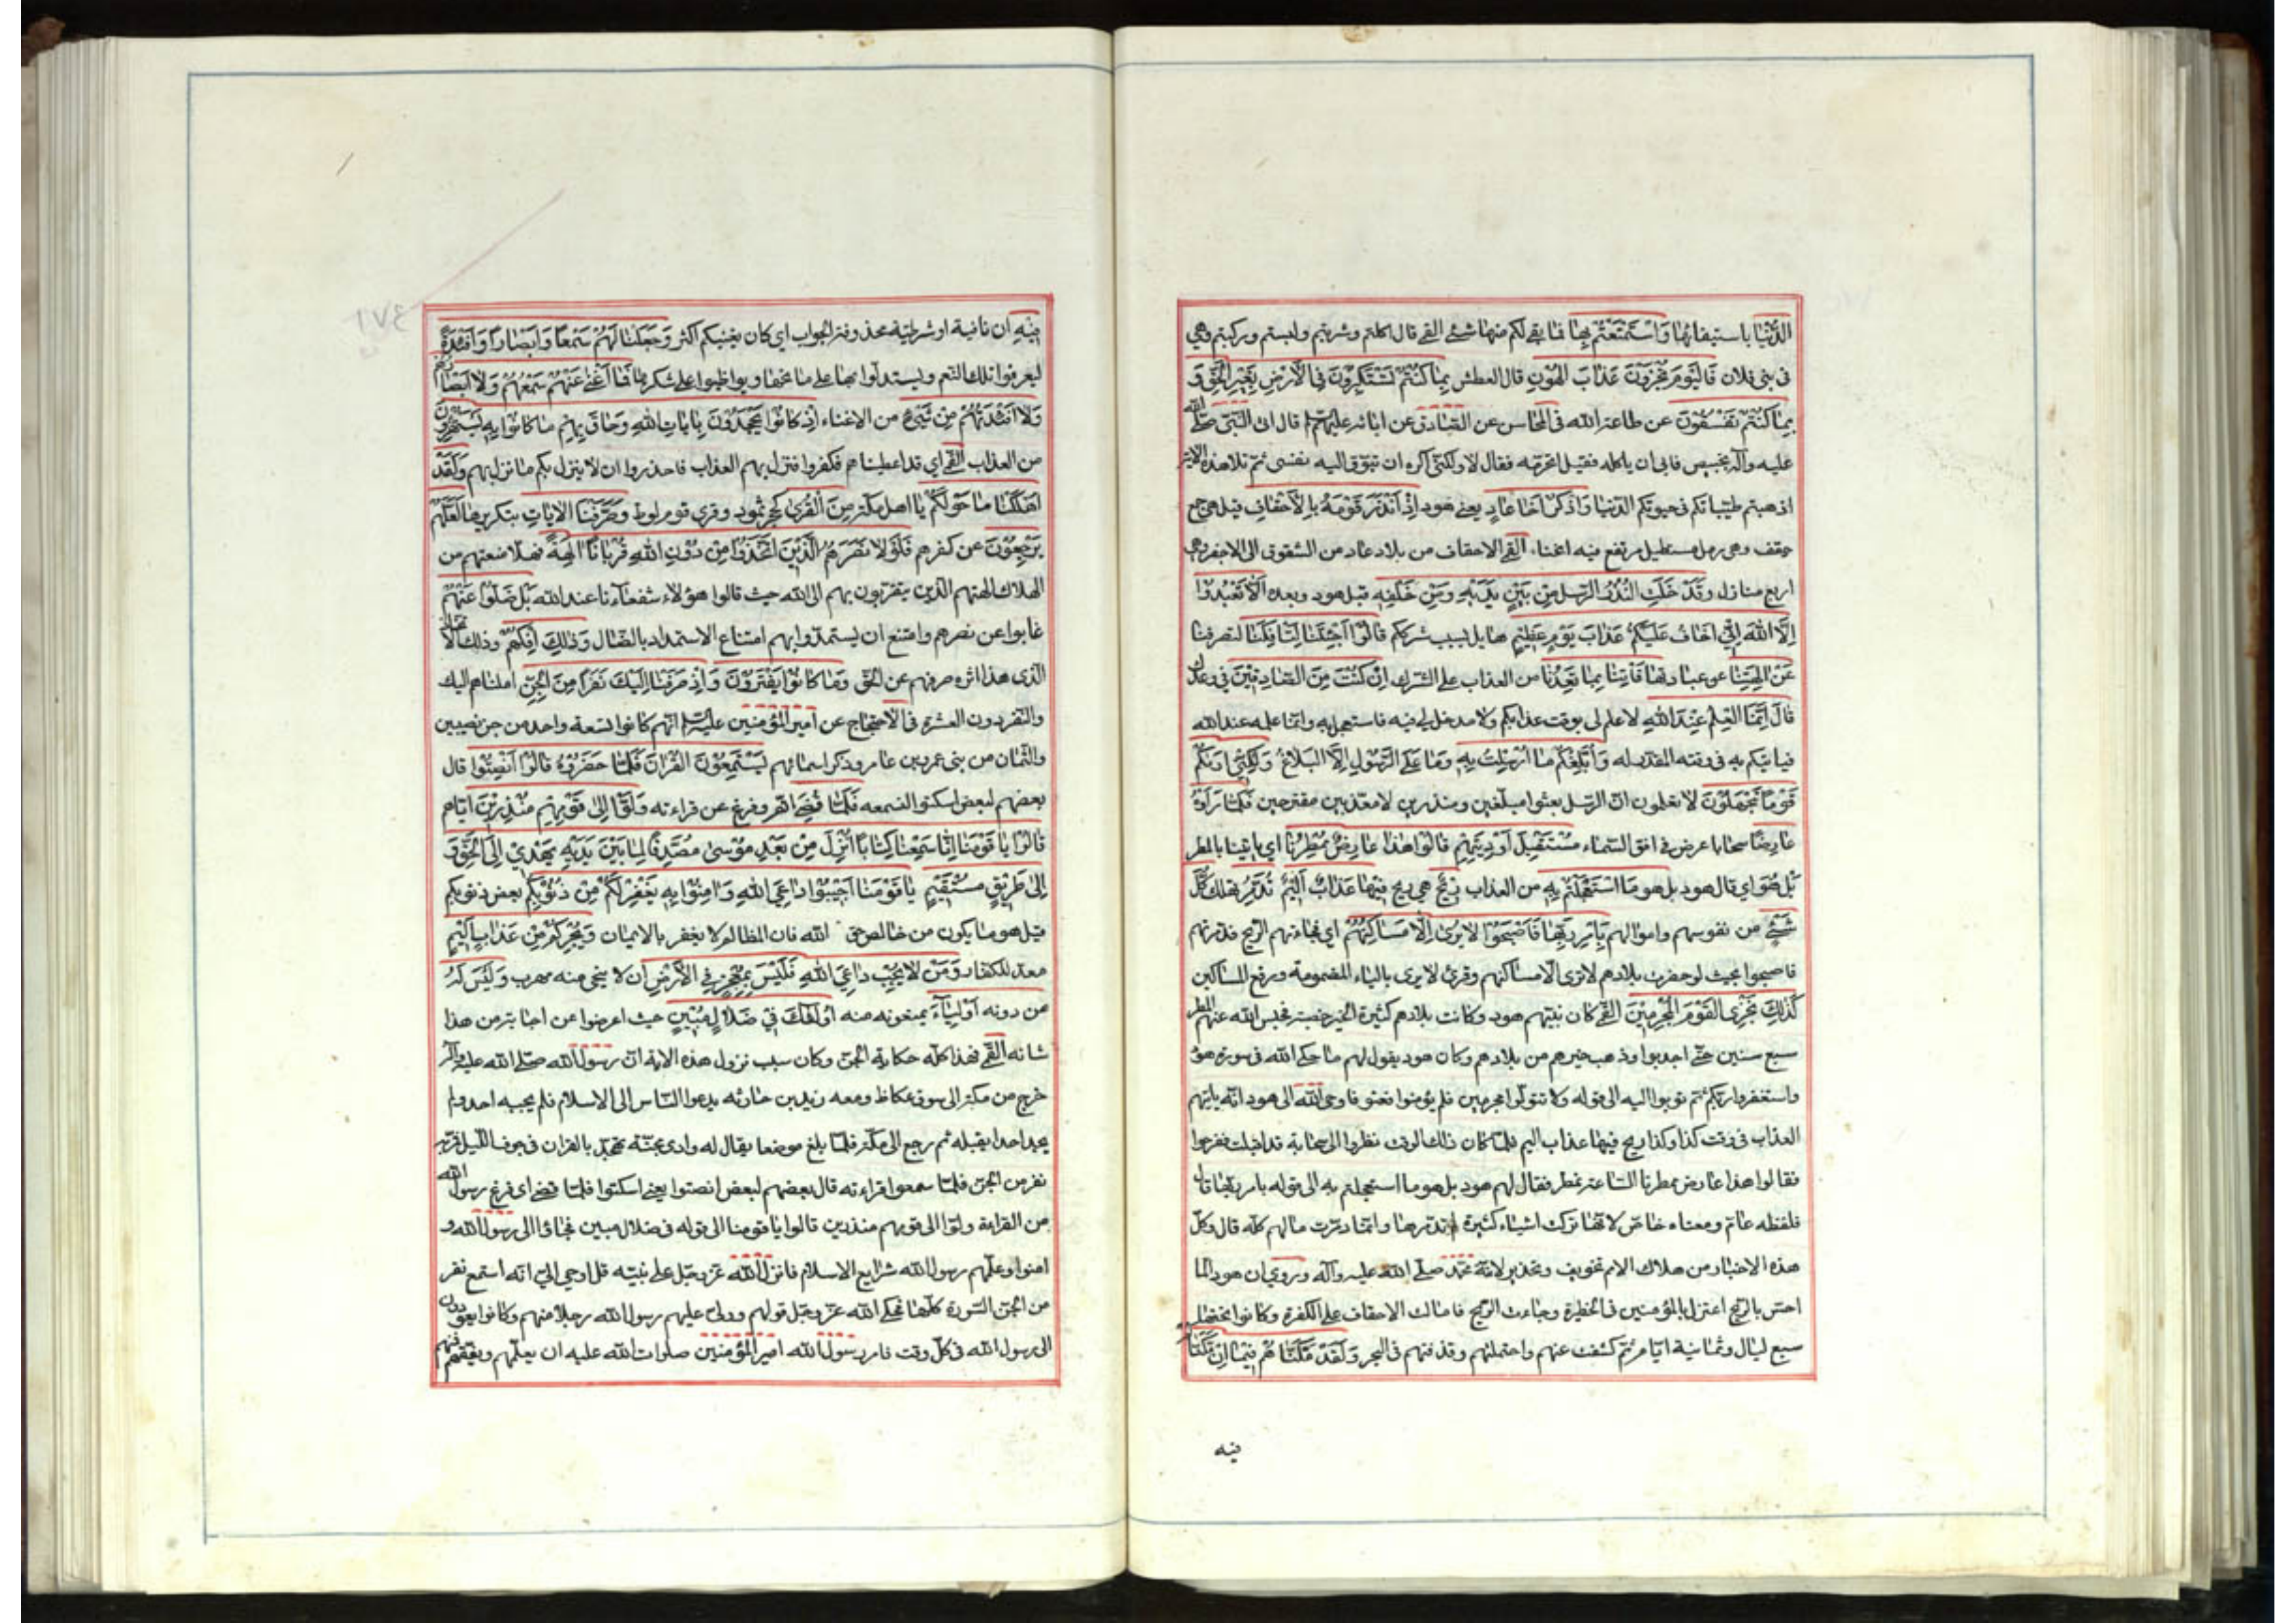 الدُّنْيَا باستيفائها وَاسْتَمْتَعْتُمْ بِهَا فما بقي لكم منها شيء القمي قال اكلتم وشربتم ولبستم وركبتم وهي
في بني فلان فَالْيَوْمَ تُجْزَوْنَ عَذَابَ الْهُونِ قال العطش بِمَا كُنْتُمْ تَسْتَكْبِرُونَ فِي الْأَرْضِ بِغَيْرِ الْحَقِّ وَ
بِمَا كُنْتُمْ تَفْسُقُونَ عن طاعة الله في المحاسن عن الصادق عن ابائه عليهم قال اتى النبي صلى الله
عليه وآله بخبيص فابى ان ياكله فقيل اتحرمه فقال لا ولكني اكره ان تتوق اليه نفسي ثم تلا هذه الاية
اذهبتم طيباتكم في حيوتكم الدنيا وَاذْكُرْ أَخَا عَادٍ يعني هود إِذْ أَنْذَرَ قَوْمَهُ بِالْأَحْقَافِ قيل هي جمع
حقف وهي رمل مستطيل مرتفع فيه انحناء القمي الاحقاف من بلاد عاد من الشقوق الى الاجفر وهي
اربع منازل وَقَدْ خَلَتِ النُّذُرُ الرسل مِنْ بَيْنِ يَدَيْهِ وَمِنْ خَلْفِهِ قبل هود وبعده أَلَّا تَعْبُدُوا
إِلَّا اللَّهَ إِنِّي أَخَافُ عَلَيْكُمْ عَذَابَ يَوْمٍ عَظِيمٍ هايل بسبب شرككم قَالُوا أَجِئْتَنَا لِتَأْفِكَنَا لتصرفنا
عَنْ آلِهَتِنَا عن عبادتها فَأْتِنَا بِمَا تَعِدُنَا من العذاب على الشرك إِنْ كُنْتَ مِنَ الصَّادِقِينَ في وعدك
قَالَ إِنَّمَا الْعِلْمُ عِنْدَ اللَّهِ لا علم لي بوقت عذابكم ولا مدخل لي فيه فاستعجل به وانما علمه عند الله
فياتيكم به في وقته المقدر له وَأُبَلِّغُكُمْ مَا أُرْسِلْتُ بِهِ وما على الرسول الا البلاغ وَلَكِنِّي أَرَاكُمْ
قَوْمًا تَجْهَلُونَ لا تعلمون ان الرسل بعثوا مبلغين ومنذرين لا معذبين مقترحين فَلَمَّا رَأَوْهُ
عَارِضًا سحابا عرض في افق السماء مُسْتَقْبِلَ أَوْدِيَتِهِمْ قَالُوا هَذَا عَارِضٌ مُمْطِرُنَا اي ياتينا بالمطر
بَلْ هُوَ اي قال هود بل هو مَا اسْتَعْجَلْتُمْ بِهِ من العذاب رِيحٌ هي ريح فِيهَا عَذَابٌ أَلِيمٌ تُدَمِّرُ تهلك كُلَّ
شَيْءٍ من نفوسهم واموالهم بِأَمْرِ رَبِّهَا فَأَصْبَحُوا لَا يُرَى إِلَّا مَسَاكِنُهُمْ اي فجاءتهم الريح فدمرتهم
فاصبحوا بحيث لو حضرت بلادهم لا ترى الا مساكنهم وقرئ لا يرى بالياء المضمومة ورفع المساكن
كَذَلِكَ نَجْزِي الْقَوْمَ الْمُجْرِمِينَ القمي كان نبيهم هود وكانت بلادهم كثيرة الخير خصبة فحبس الله عنهم المطر
سبع سنين حتى اجدبوا وذهب خيرهم من بلادهم وكان هود يقول لهم ما حكى الله في سورة هود
واستغفروا ربكم ثم توبوا اليه الى قوله ولا تتولوا مجرمين فلم يؤمنوا فعتوا فاوحى الله الى هود انه ياتيهم
العذاب في وقت كذا وكذا ريح فيها عذاب اليم فلما كان ذلك الوقت نظروا الى سحابة قد اقبلت ففرحوا
فقالوا هذا عارض ممطرنا الساعة نمطر فقال لهم هود بل هو ما استعجلتم به الى قوله بامر ربها قال
فلفظه عام ومعناه خاص لانها تركت اشياء كثيرة لم تدمرها وانما دمرت مالهم كله قال وكل
هذه الاخبار من هلاك الامم تخويف وتحذير لامة محمد صلى الله عليه وآله وروي ان هودا لما
احس بالريح اعتزل بالمؤمنين في الحظيرة وجاءت الريح فامالت الاحقاف على الكفرة وكانوا تحتها
سبع ليال وثمانية ايام ثم كشفت عنهم واحتملتهم وقذفتهم في البحر وَلَقَدْ مَكَّنَّاهُمْ فِيمَا إِنْ مَكَّنَّاكُمْ
فيه
فِيهِ ان نافية او شرطية محذوفة الجواب اي كان بغيكم اكثر وَجَعَلْنَا لَهُمْ سَمْعًا وَأَبْصَارًا وَأَفْئِدَةً
ليعرفوا تلك النعم ويستدلوا بها على مانحها ويواظبوا على شكرها فَمَا أَغْنَى عَنْهُمْ سَمْعُهُمْ وَلَا أَبْصَارُهُمْ
وَلَا أَفْئِدَتُهُمْ مِنْ شَيْءٍ من الاغناء إِذْ كَانُوا يَجْحَدُونَ بِآيَاتِ اللَّهِ وَحَاقَ بِهِمْ مَا كَانُوا بِهِ يَسْتَهْزِئُونَ
من العذاب القمي اي قد اعطيناهم فكفروا فنزل بهم العذاب فاحذروا ان لا ينزل بكم ما نزل بهم وَلَقَدْ
أَهْلَكْنَا مَا حَوْلَكُمْ يا اهل مكة مِنَ الْقُرَى كحجر ثمود وقرى قوم لوط وَصَرَّفْنَا الْآيَاتِ بتكريرها لَعَلَّهُمْ
يَرْجِعُونَ عن كفرهم فَلَوْلَا نَصَرَهُمُ الَّذِينَ اتَّخَذُوا مِنْ دُونِ اللَّهِ قُرْبَانًا آلِهَةً فهلا منعتهم من
الهلاك الهتهم الذين يتقربون بهم الى الله حيث قالوا هؤلاء شفعاؤنا عند الله بَلْ ضَلُّوا عَنْهُمْ
غابوا عن نصرهم وامتنع ان يستمدوا بهم امتناع الاستمداد بالضال وَذَلِكَ إِفْكُهُمْ وذلك
الذي هذا اثره صرفهم عن الحق وَمَا كَانُوا يَفْتَرُونَ وَإِذْ صَرَفْنَا إِلَيْكَ نَفَرًا مِنَ الْجِنِّ املناهم اليك
والنفر دون العشرة في الاحتجاج عن امير المؤمنين عليه السلام انهم كانوا تسعة واحد من جن نصيبين
والثمان من بني عمرو بن عامر وذكر اسمائهم يَسْتَمِعُونَ الْقُرْآنَ فَلَمَّا حَضَرُوهُ قَالُوا أَنْصِتُوا قال
بعضهم لبعض اسكتوا لنسمعه فَلَمَّا قُضِيَ اتم وفرغ عن قراءته وَلَّوْا إِلَى قَوْمِهِمْ مُنْذِرِينَ اياهم
قَالُوا يَا قَوْمَنَا إِنَّا سَمِعْنَا كِتَابًا أُنْزِلَ مِنْ بَعْدِ مُوسَى مُصَدِّقًا لِمَا بَيْنَ يَدَيْهِ يَهْدِي إِلَى الْحَقِّ وَ
إِلَى طَرِيقٍ مُسْتَقِيمٍ يَا قَوْمَنَا أَجِيبُوا دَاعِيَ اللَّهِ وَآمِنُوا بِهِ يَغْفِرْ لَكُمْ مِنْ ذُنُوبِكُمْ بعض ذنوبكم
قيل هو ما يكون من خالص حق الله فان المظالم لا يغفر بالايمان وَيُجِرْكُمْ مِنْ عَذَابٍ أَلِيمٍ
معد للكفار وَمَنْ لَا يُجِبْ دَاعِيَ اللَّهِ فَلَيْسَ بِمُعْجِزٍ فِي الْأَرْضِ ان لا ينجي منه مهرب وَلَيْسَ لَهُ
من دونه أَوْلِيَاءُ يمنعونه منه أُولَئِكَ فِي ضَلَالٍ مُبِينٍ حيث اعرضوا عن اجابة من هذا
شانه القمي فهذا كله حكاية الجن وكان سبب نزول هذه الاية ان رسول الله صلى الله عليه وآله
خرج من مكة الى سوق عكاظ ومعه زيد بن حارثه يدعوا الناس الى الاسلام فلم يجبه احد ولم
يجد احدا يقبله ثم رجع الى مكة فلما بلغ موضعا يقال له وادي مجنة تهجد بالقران في جوف الليل فمر به
نفر من الجن فلما سمعوا قراءته قال بعضهم لبعض انصتوا يعني اسكتوا فلما قضى اي فرغ رسول الله
من القراءة ولوا الى قومهم منذرين قالوا يا قومنا الى قوله في ضلال مبين فجاؤا الى رسول الله و
امنوا وعلمهم رسول الله شرايع الاسلام فانزل الله عز وجل على نبيه قل اوحي الي انه استمع نفر
من الجن السورة كلها فحكى الله عز وجل قولهم وولى عليهم رسول الله رجلا منهم وكانوا يعودون
الى رسول الله في كل وقت فامر رسول الله امير المؤمنين صلوات الله عليه ان يعلمهم ويفقههم